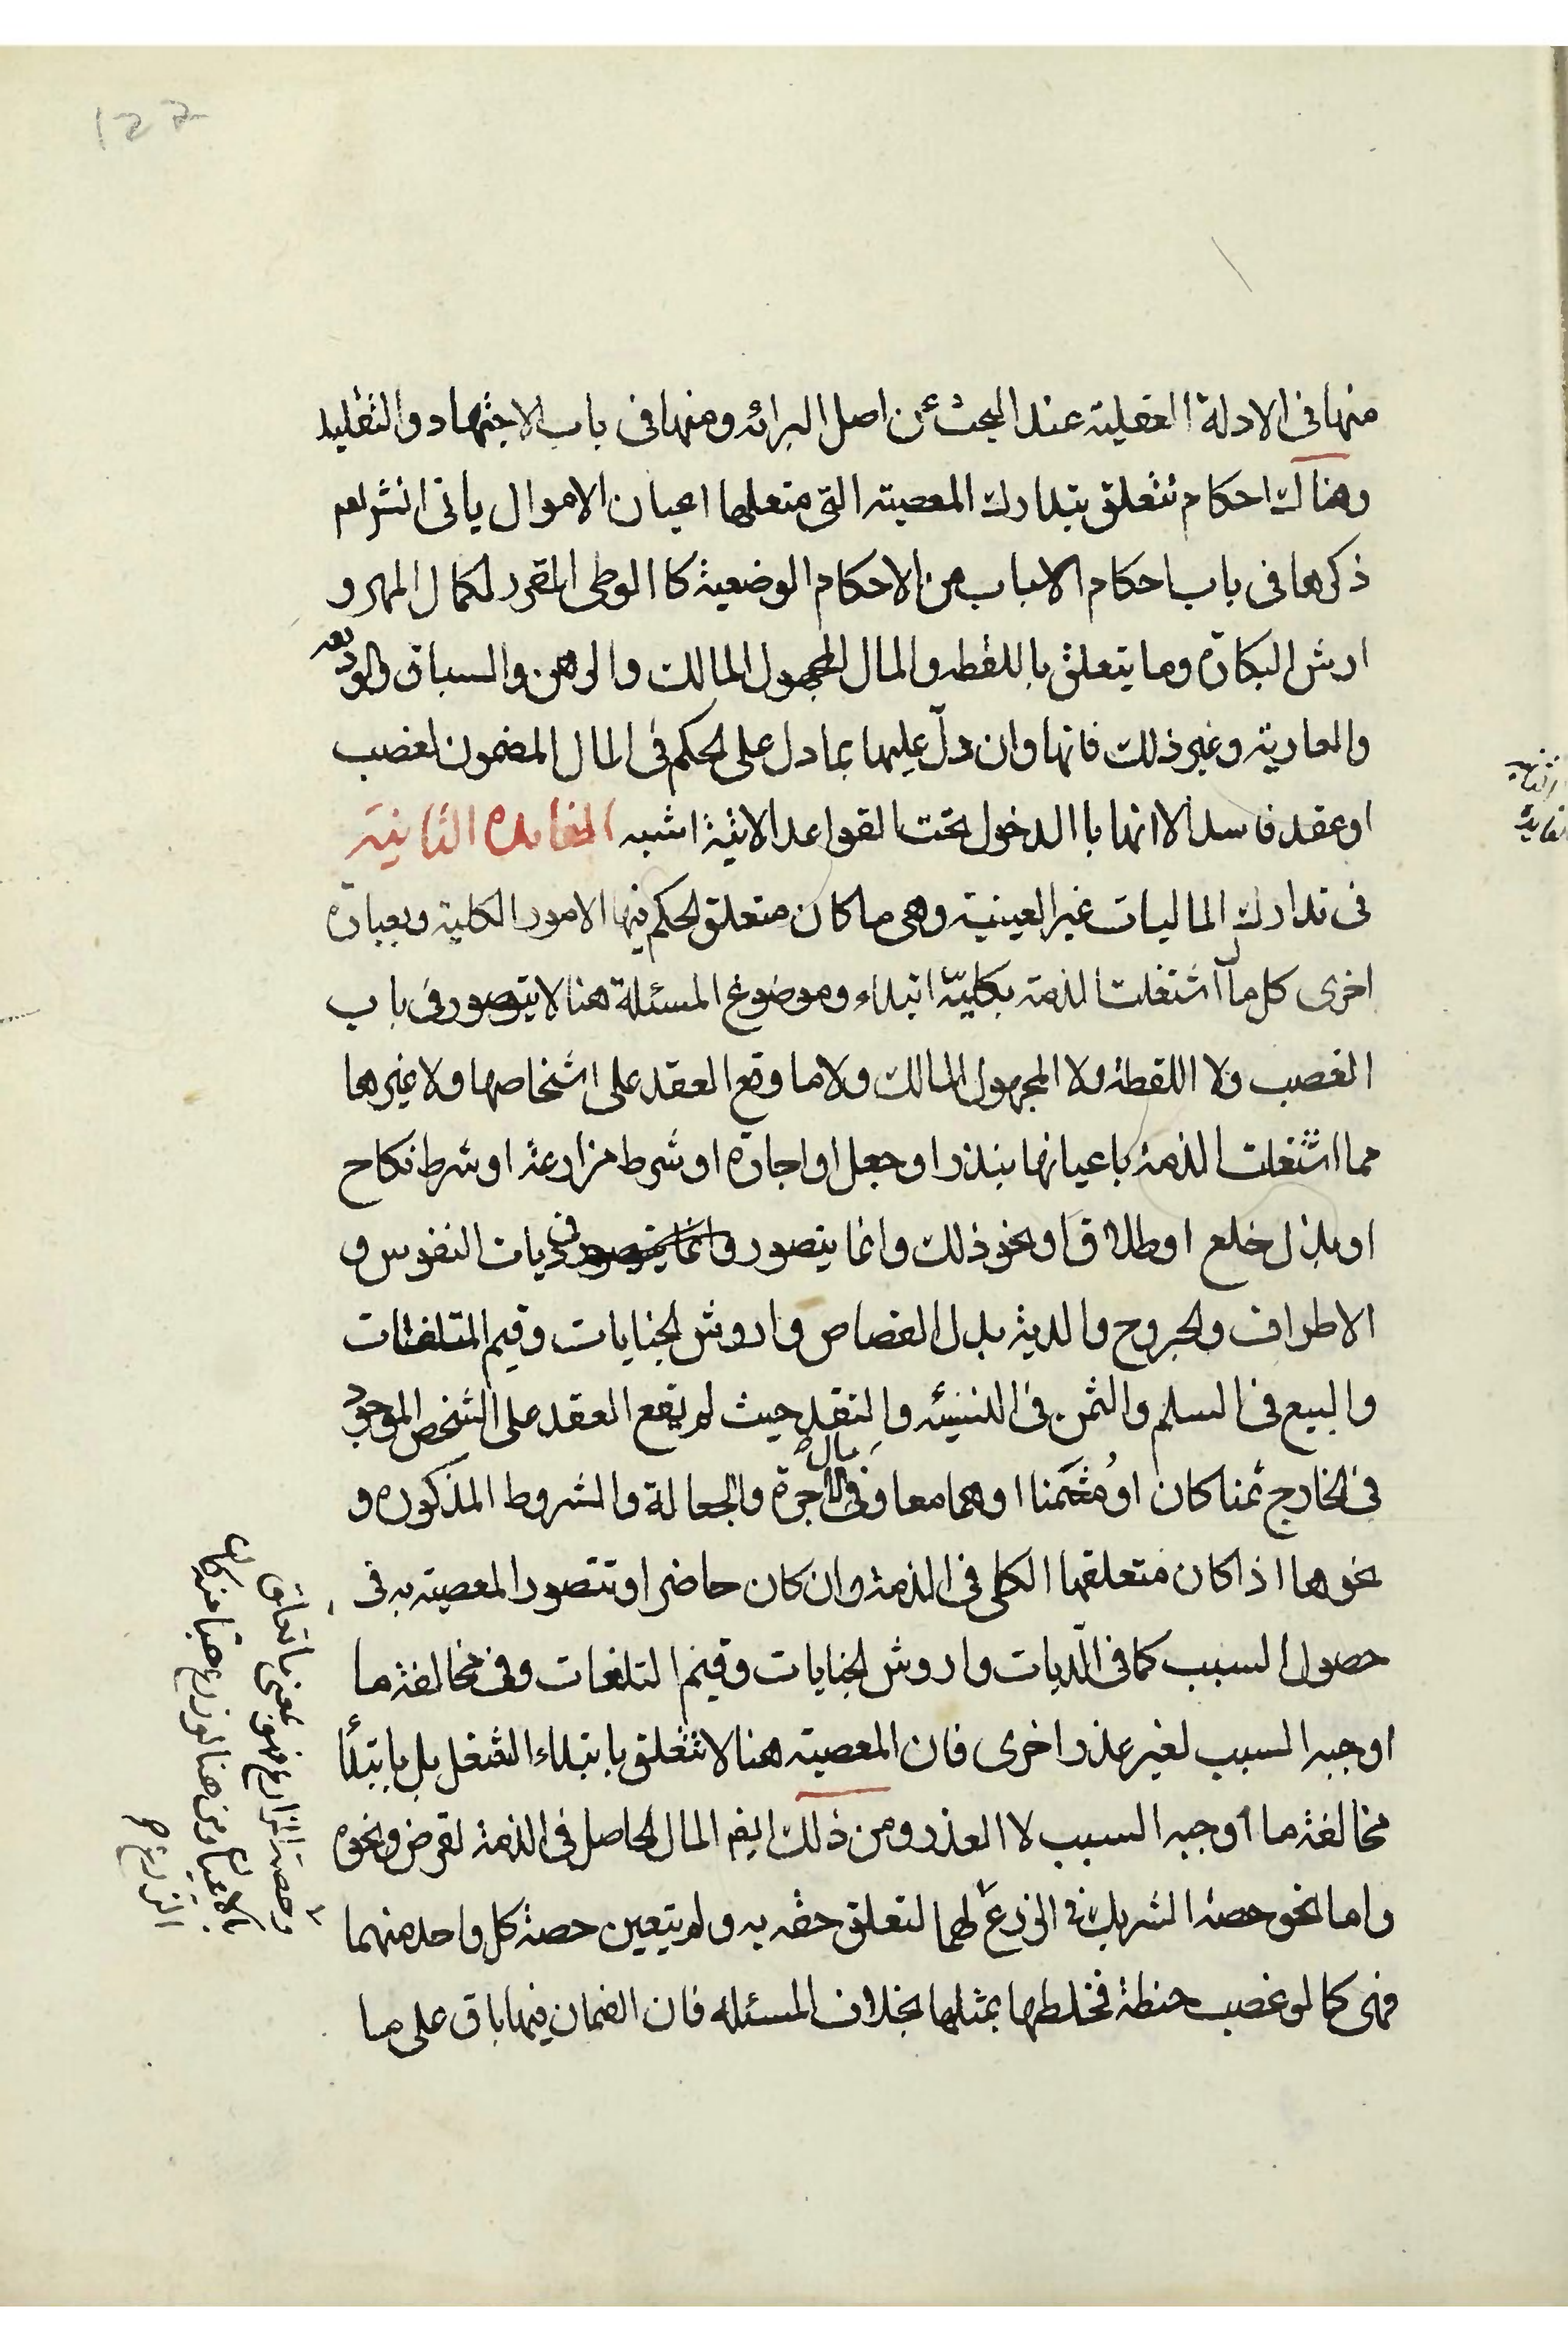 منها فى الادلة العقلية عند البحث عن اصل البرائه ومنها فى باب الاجتهاد والتقليد
وهناك احكام تتعلق بتدارك المعصيته التى متعلها اعيان الاموال ياتى انشر لعم
ذكرها فى باب احكام الاسباب من الاحكام الوضعية كا الوطى المقرر لكمال المهر و
ارش البكارة وما يتعلق باللقطه والمال المجهول المالك والرهن والسباق والوديعه
والعاريته وغير ذلك فانها وان دلّ عليها بما دل على الحكم فى المال المضمون لغصب
او عقد فاسد الا انها با الدخول تحت القواعد الاتية اشبه الفايده الثانية
فى تدارك الماليات غير العينية وهى ما كان متعلق الحكم فيها الامور الكلية وبعبارة
اخرى كل ما اشتغلت الذمة بكليّته ابتداء وموضوع المسئلة هنا لا يتصور فى باب
الغصب ولا اللقطة ولا المجهول المالك ولا ما وقع العقد على اشخاصها ولا غيرها
مما اشتغلت الذمة باعيانها بنذر او جعل او اجارة او شرط مزارعة او شرط نكاح
او بذل خلع او طلاق او نحو ذلك وانما يتصور فى ديات النفوس و
الاطراف والجروح والدية بدل القصاص واروش الجنايات وقيم المتلفات
والبيع فى السلم والثمن فى النسيئه والنقد حيث لم يقع العقد على الشخص الموجود
فى الخارج ثمنا كان او مُثمَنا او هما معا وفى مال الاجرة والجعالة والشروط المذكوره و
نحوها اذا كان متعلقها الكلى فى الذمة وان كان حاضرا وتتصور المعصيته به فى
حصول السبب كما فى الدّيات واروش الجنايات وقيم التلفات وفى مخالفة ما
اوجبه السبب لغير عذر اخرى فان المعصيته هنا لا تتعلق بابتداء الشغل بل بابتدأ
مخالفة ما اوجبه السبب لا العذر ومن ذلك ايض المال الحاصل فى الذمة لقرض ونحوه
واما نحو حصة الشريك فى الزرع لهما لتعلق حقه به ولم يتعين حصة كل واحد منهما
فهى كما لو غصب حنطة فخلطها بمثلها بخلاف المسئله فان الضمان فيها باق على ما